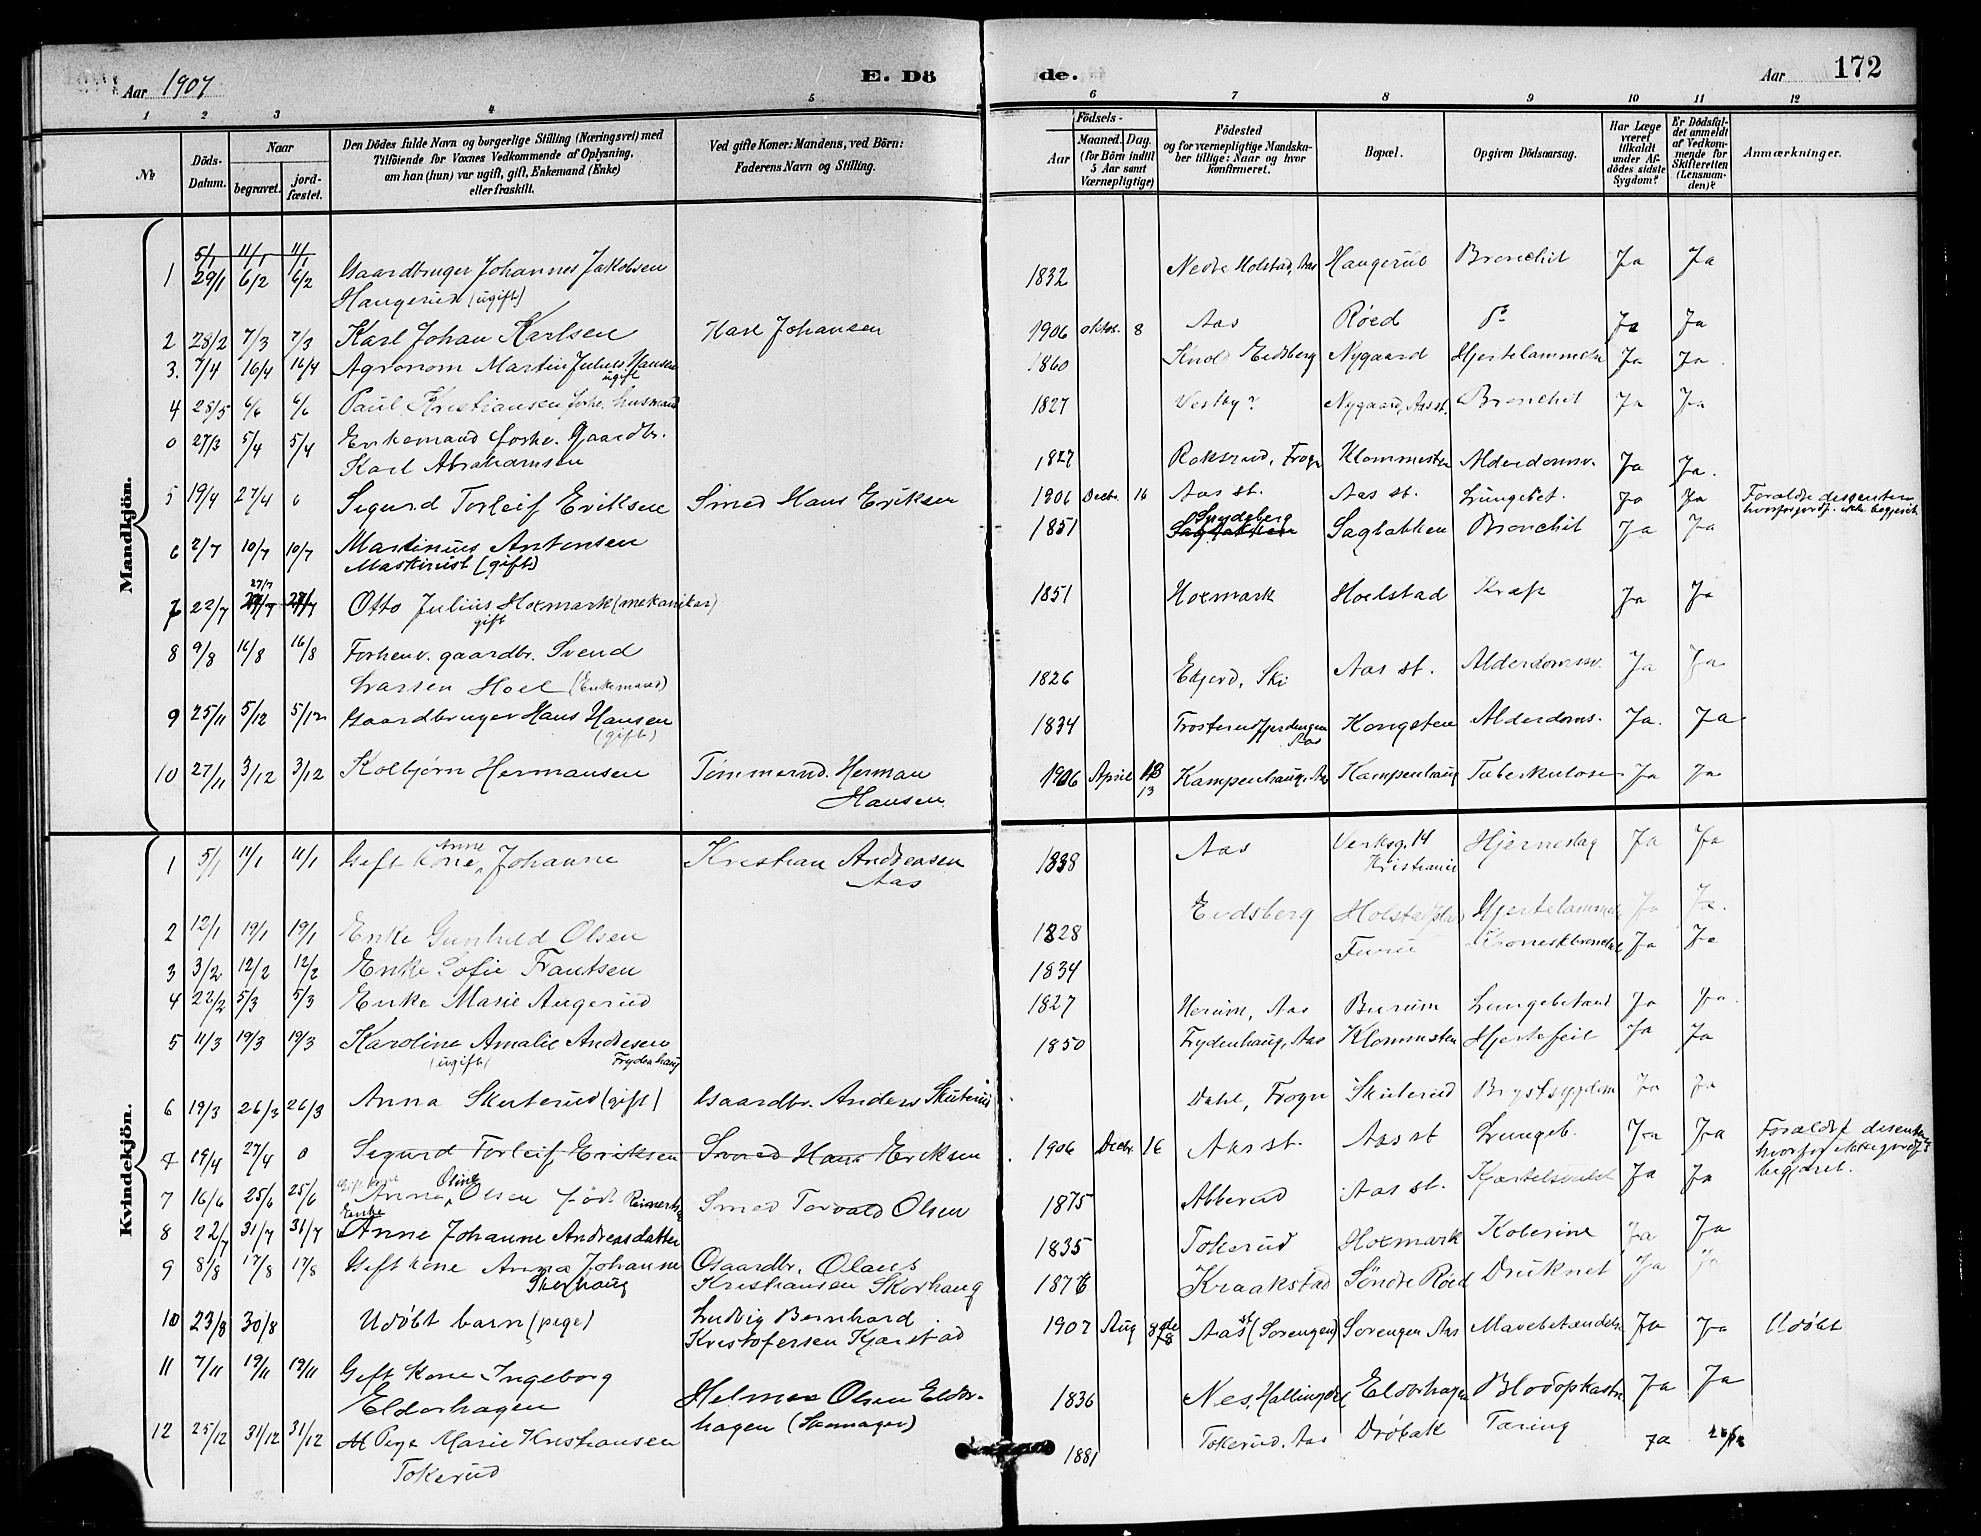 Aar 1907
E. Dö
de.
Aar
172
1 2 3 4 5 6 7 8 9 10 11 12
№
Döds-Datum.
Naar
begravet.
jordfæstet.
Den Dödes fulde Navn og borgerlige Stilling (Næringsvei) med
Tilföiende for Voxnes Vedkommende af Oplysning,
om han (hun) var ugift, gift, Enkemand (Enke)
eller fraskilt.
Ved gifte Koner: Mandens, ved Börn:
Faderens Navn og Stilling.
Födsels-
Aar
Maaned. Dag.
(for Börn indtil
5 Aar samt
Værnepligtige)
Födested
og for værnepligtige Mandskaber tillige: Naar og hvor konfirmeret.
Bopæl.
Opgiven Dödsaarsag.
Har Læge været tilkaldt under Afdödes sidste Sygdom?
Er Dödsfaldet anmeldt af Vedkommende for Skifteretten (Lensmanden)?
Anmærkninger.
Mandkjön.
5/1 11/1 11/1
1 29/1 6/2 6/2 Gaardbruger Johannes Jakobsen 1832 Nedre Holstad, Aas Haugerud Bronchit Ja Ja
Haugerud (ugift)
2 28/2 7/3 7/3 Karl Johan Karlsen Karl Johansen 1906 oktob. 8 Aas Röed do Ja Ja
3. 7/4 16/4 16/4 Agronom Martin Julius Hansen 1860 Eidsberg Nygaard Hjertelammelse Ja Ja
ugift
4 28/5 6/6 6/6 Paul Kristiansen forhv. husmand 1827 Vestby? Nygaard, Aas st. Bronchit Ja Ja
0 27/3 5/4 5/4 Enkemand forhv. Gaardbr.
Karl Abrahamsen 1827 Frogn Klommesten Alderdomsv. Ja Ja.
5 19/4 27/4 0 Sigurd Torleif Eriksen Smed Hans Eriksen 1906 Decbr. 16 Aas st. Aas st. Lungebet. Ja Ja Foraldre dissentere
6 2/7 10/7 10/7 Martinius Antonsen 1851 Spydeberg Sagbakken Sagbakken Bronchit Ja Ja
Maskinist (gift)
7 22/7 27/7 27/7 Otto Julius Holmark (mekaniker) 1851 Holmark Holstad Kræft Ja Ja
gift
8 9/8 16/8 16/8 Forhenv. gaardbr. Svend
Larsen Hoel (Enkemand) 1826 Ski Aas st. Alderdomsv. Ja Ja
9 25/11 5/12 5/12 Gaardbruger Hans Hansen 1834 Aas Kongsten Alderdoms. Ja. Ja
(gift)
10 27/11 3/12 3/12 Kolbjørn Hermansen Tömmermd. Herman 1906 April 13 Kampenhaug, Aas Kampenhaug Tuberkulose Ja Ja
Hansen 13
Kvindekjön.
1 5/1 11/1 11/1 Gift Kone Anne Johanne Kristian Andersen 1838 Aas Verksg. 14 Hjerneslag Ja Ja
Aas Kristiania
2 12/1 19/1 19/1 Enke Gunhild Olsen 1828 Eidsberg Hjertelammelse Ja Ja.
3 3/2 12/2 12/2 Enke Sofie Frantsen 1834 Furu Ja Ja
4 22/2 5/3 5/3 Enke Marie Augerud 1827 Herum, Aas Burum Lungebetænd Ja Ja.
5 11/3 19/3 19/3 Karoline Amalie Andersen 1850 Frydenhaug, Aas Klommsten Hjertefeil Ja Ja
(ugift) Frydenhaug
6 19/3 26/3 26/3 Anna Skuterud (gift) Gaardbr. Anders Skuterud Dahl, Frogn Skuterud Brystsygdom Ja Ja
7 19/4 27/4 0 Sigurd Torleif Eriksen Smed Hans Eriksen 1906 Decbr. 16 Aas st. Aas st Lungeb. Ja Ja Forældre
begjæret.
7 16/6 25/6 25/6 Gift kone Anna Oline Olsen født Smed Torvald Olsen 1875 Abberud Aas st. Ja Ja
8 22/7 31/7 31/7 Enke Anne Johanne Andreasdatter 1835 Tokerud Holmark Kolerine Ja Ja
9 8/8 17/8 17/8 Gift kone Anna Johanne Gaardbr. Olaus 1876 Kraakstad Söndre Röed Druknet Ja Ja
Skorhaug Kristiansen Skorhaug
10 23/8 30/8 Udöbt barn (pige) Ludvig Bernhard 1907 Aug Aas st (Sorengen) Sorengen Aas Mavebetændelse Ja Ja Udöbt
Kristofersen Kjærstad
11 7/11 19/11 19/11 Gift Kone Ingeborg 1836 Nes, Hallingdal Eldorhagen Blodopkastn Ja Ja
Eldorhagen Helmer Olsen Eldor-
hagen (Skomager)
12 25/12 31/12 31/12 Pige Marie Kristiansen 1881 Tokerud, Aas Dröbak Tæring Ja
Tokerud